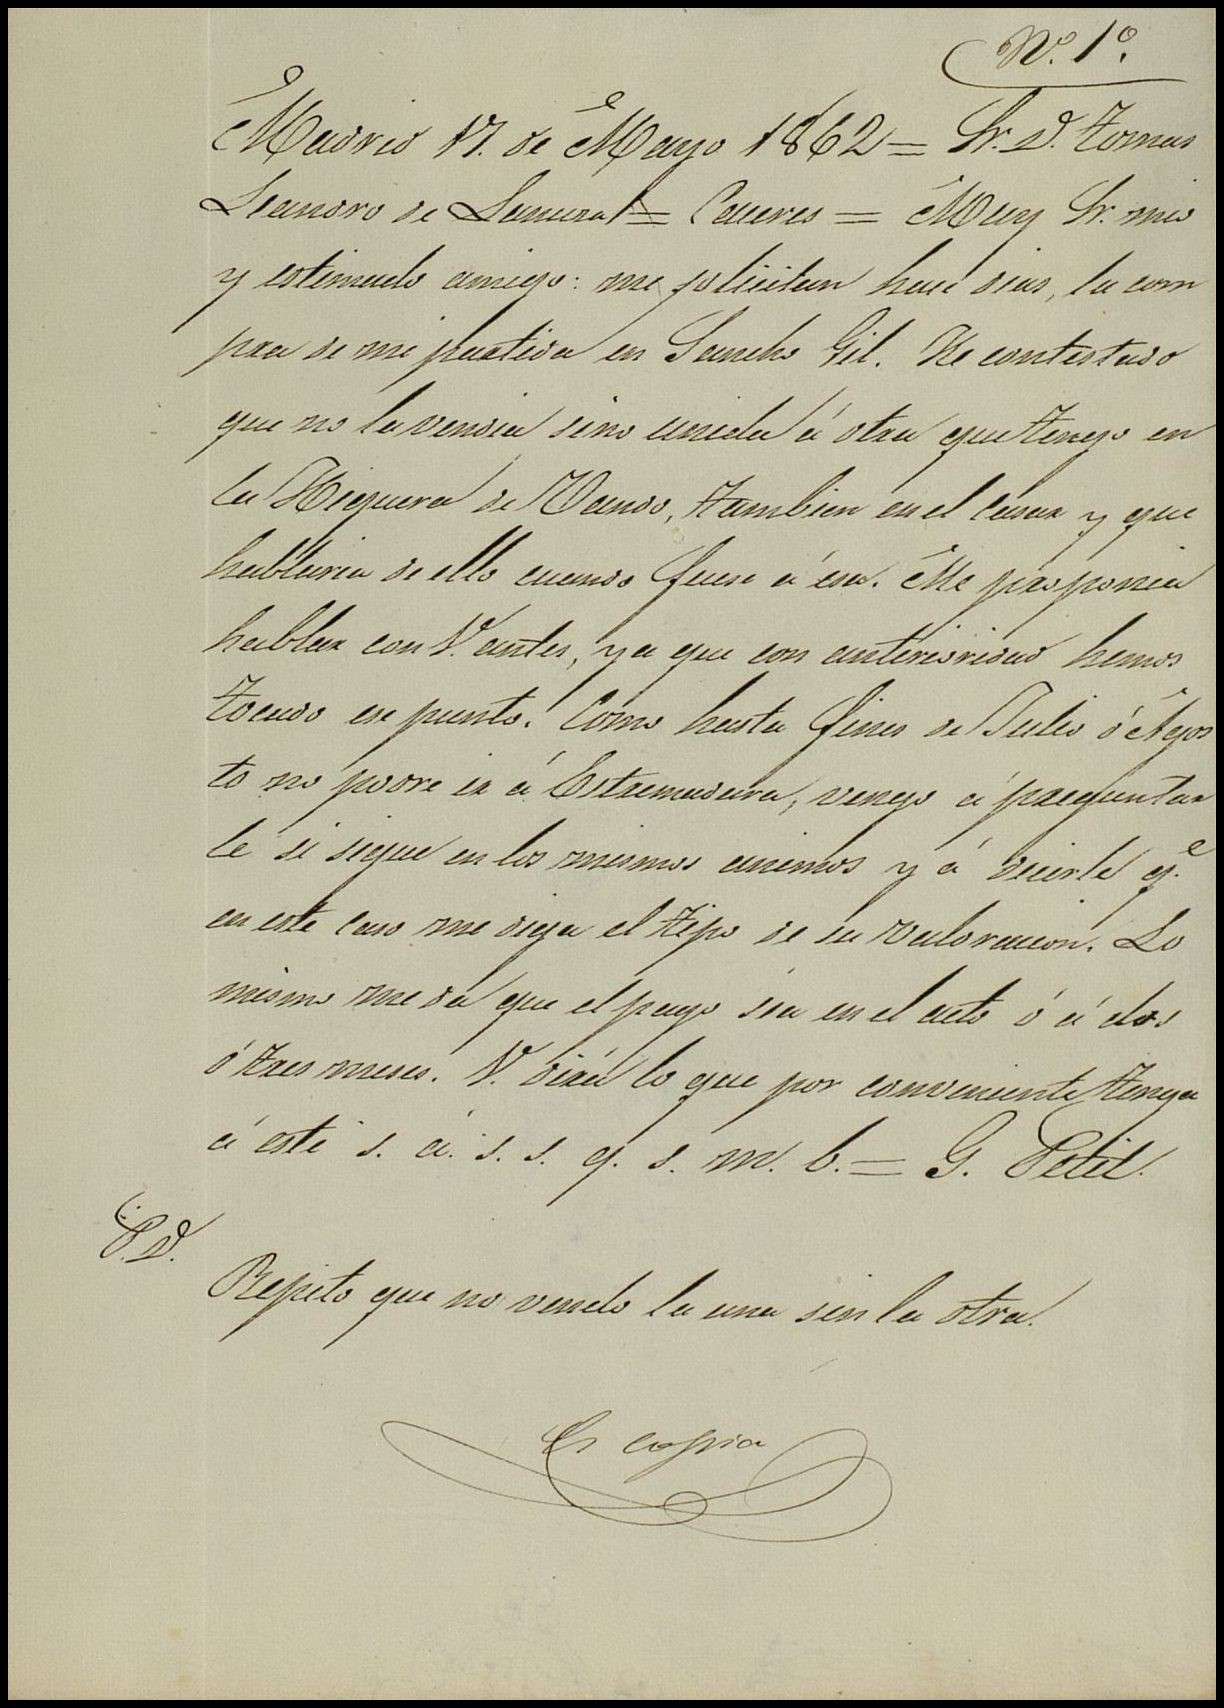 Nº. 1º.
Madrid 17. de Mayo 1862 = Sr. D. Tomas
Leandro de = Caceres = Muy Sr. mio
y estimado amigo: me solicitan hace dias, la com
pra de mi partida en Sancho Gil. He contestado
que no la vendia sino unida á otra que tengo en
la Higuera de Vando, tambien en el Casar y que
hablaria de ello cuando fuese á esa. Me proponia
hablar con V. antes, ya que con anterioridad hemos
tocado ese punto. Como hasta fines de Julio ó Agos
to no podre ir á Estremadura, vengo á preguntar
le si sigue en los mismos animos y á decirle q.e
en este caso me diga el tipo de su valoracion. Lo
mismo me da que el pago sea en el acto ó á dos
ó tres meses. V. dirá lo que por conveniente tenga
á este s. a. s. s. q. s. m. b. = G. Petit.
P.D.
Repito que no vendo la una sin la otra.
Es copia